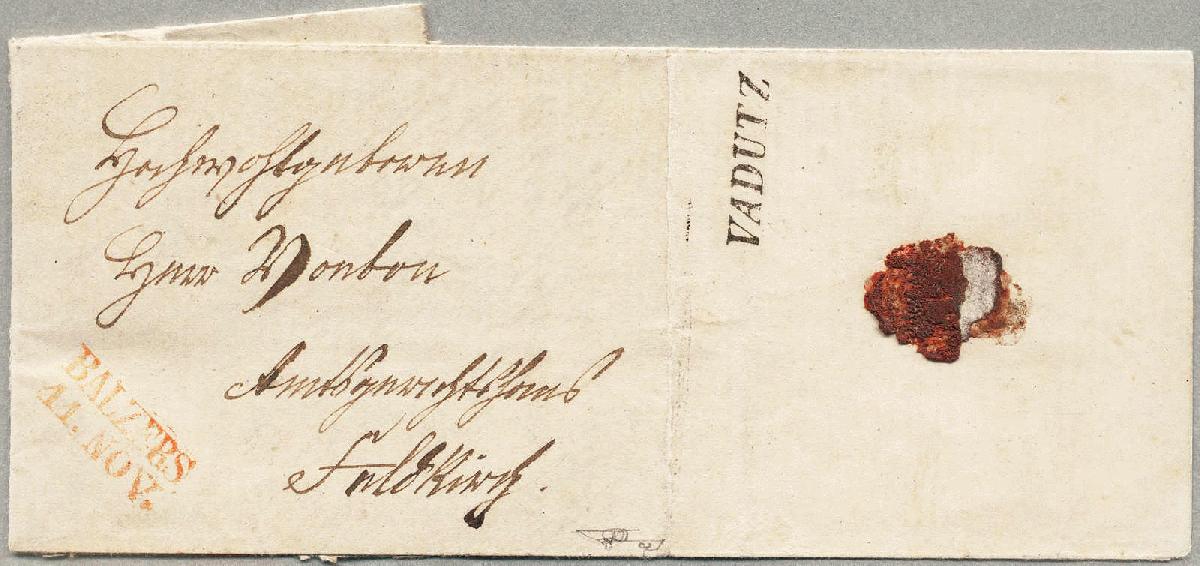 Hochwohlgeboren
Herr Vonbon
Amtsgerichtshaus
Feldkirch.
BALZERS
11. NOV.
VADUTZ